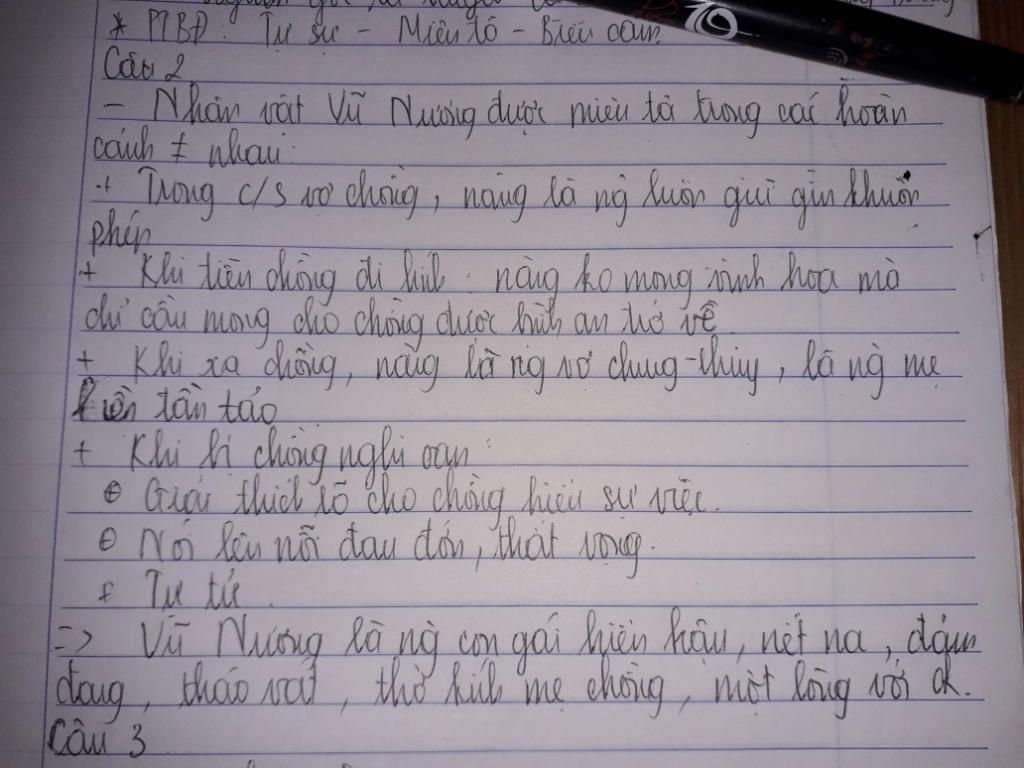 * PTBĐ: Tự sự - Miêu tả - Biểu cảm
Câu 2
- Nhân vật Vũ Nương được miêu tả trong các hoàn
cảnh ≠ nhau:
+ Trong c/s vợ chồng, nàng là ng luôn giữ gìn khuôn
phép
+ Khi tiễn chồng đi lính: nàng ko mong vinh hoa mà
chỉ cầu mong cho chồng được bình an trở về
+ Khi xa chồng, nàng là ng vợ chung-thủy, là ng mẹ
hiền tần tảo
+ Khi bị chồng nghi oan:
⊕ Giải thích rõ cho chồng hiểu sự việc.
⊕ Nói lên nỗi đau đớn, thất vọng.
+ Tự tử.
=> Vũ Nương là ng con gái hiền hậu, nết na, đảm
đang, tháo vát, thờ kính mẹ chồng, một lòng với ck.
Câu 3